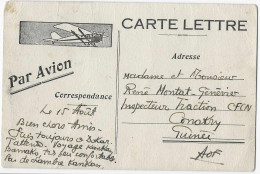 CARTE LETTRE
Par Avion
Adresse
Madame et Monsieur
René Montat-Génévrier
Inspecteur Traction CFCN
Conakry
Guinée
AOF
Correspondance
Le 15 Août
Bien chers Amis
Suis toujours à Dakar
J'attends. Voyage Kankan
Bamako, très peu confortable
Pas de chambre Kankan.